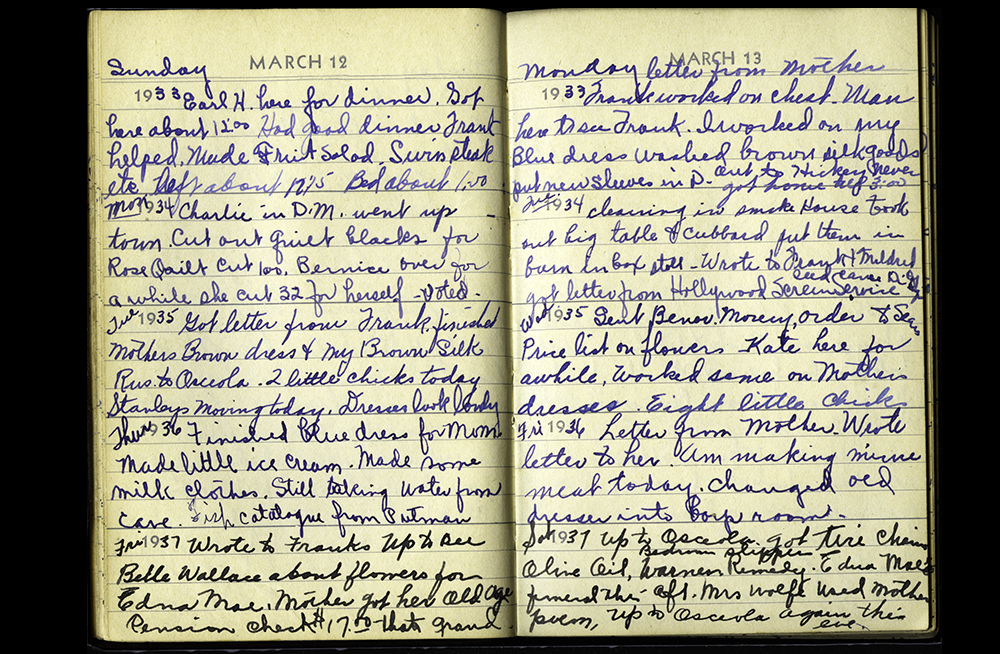 MARCH 12
Sunday
1933 Earl H. here for dinner. Got
here about 12:00 Had good dinner Frank
helped. Made Fruit Salad. Swiss steak
etc. Left about 12:15 Bed about 1:00
Mon 1934 Charlie in D.M. went up
town. Cut out Quilt blocks for
Rose Quilt Cut 100. Bernice over for
a while she cut 32 for herself - Voted.
Tue 1935 Got letter from Frank. finished
Mothers Brown dress & my Brown Silk
Rus. to Osceola. 2 little chicks today
Stanleys moving today. Dresses look lovely
Thurs 1936 Finished blue dress for Mom
Made little ice cream. Made some
milk clothes. Still taking water from
cave. catalogue from Putman
Fri 1937 Wrote to Franks Up to see
Belle Wallace about flowers for
Edna Mae. Mother got her Old Age
Pension check $17.00 thats grand.
MARCH 13
Monday letter from Mother
1933 Frank worked on chest. Man
here to see Frank. I worked on my
Blue dress washed brown silk goods
put new sleeves in D. out to Hickey never
got home till 3:00
Tue 1934 cleaning in smoke House took
out big table & cubbard put them in
barn in box stall - Wrote to Frank & Mildred
Seed Care
got letter from Hollywood Screen Service
Wed 1935 Sent Money, order to Sears
Price list on flowers Kate here for
awhile, Worked some on Mothers
dresses. Eight little chicks
Fri 1936 Letter from Mother. Wrote
letter to her. Am making mince
meat today. changed old
dresser into room.
Sat 1937 Up to Osceola. got tire chains
Bedroom slippers
Olive Oil, Warners Remedy. Edna Mae's
funeral this aft. Mrs Wolfe used Mothers
poem, Up to Osceola again this
eve.